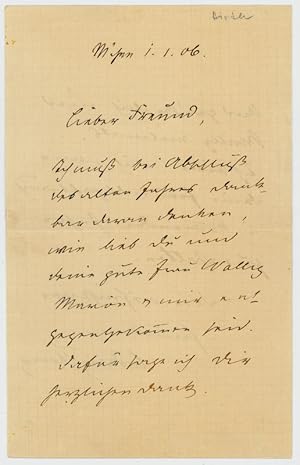 Wien 1.1.06.
Lieber Freund,
Ich muß bei Abschluß
des alten Jahres dank-
bar daran denken,
wie lieb Du und
deine gute Frau Wallis
Marie & mir ent-
gegengekommen seid.
Dafür sage ich Dir
herzlichen Dank.